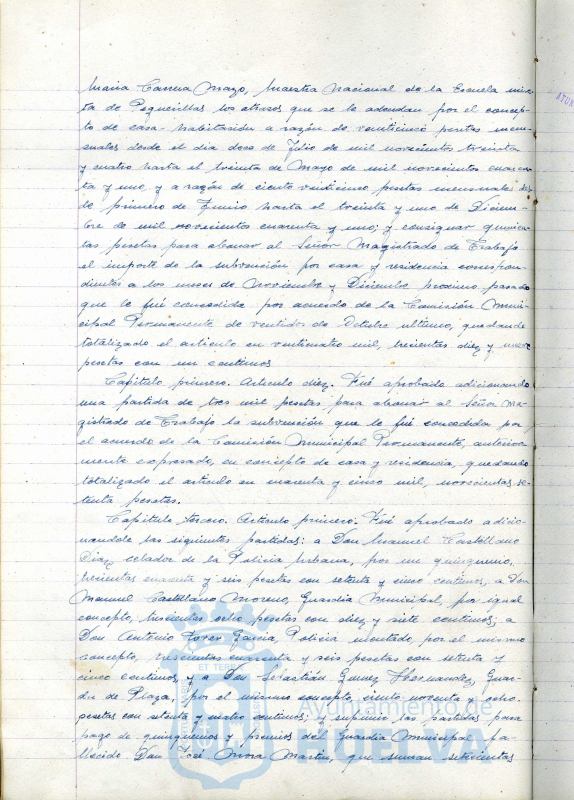 Maria Correa Mazo, Maestra Nacional de la Escuela mix-
ta de Pequerillas los atrasos que se le adeudan por el concep-
to de casa-habitación a razón de veinticinco pesetas men-
suales desde el dia doce de Julio de mil novecientos treinta
y cuatro hasta el treinta de Mayo de mil novecientos cuaren-
ta y uno, y a razón de ciento veinticinco pesetas mensuales des-
de primero de Junio hasta el treinta y uno de Diciem-
bre de mil novecientos cuarenta y uno; y consignar quinien-
tas pesetas para abonar al Señor Magistrado de Trabajo
el importe de la subvención por casa y residencia correspon-
dientes a los meses de Noviembre y Diciembre proximo pasado
que le fué concedida por acuerdo de la Comisión Muni-
cipal Permanente de veintidos de Octubre ultimo, quedando
totalizado el articulo en veinticuatro mil, trescientas diez y nueve
pesetas con un centimos
Capitulo primero. Articulo diez. Fué aprobado adicionando
una partida de tres mil pesetas para abonar al Señor Ma-
gistrado de Trabajo la subvención que le fué concedida por
el acuerdo de la Comisión Municipal Permanente, anterior-
mente expresado, en concepto de casa y residencia, quedando
totalizado el articulo en cuarenta y cinco mil, novecientas se-
tenta pesetas.
Capitulo tercero. Articulo primero. Fué aprobado adicio-
nandole las siguientes partidas: a Don Manuel Castellano
Diaz, celador de la Policia Urbana, por un quinquenio,
trescientas cuarenta y seis pesetas con setenta y cinco centimos, a Don
Manuel Castellano Moreno, Guardia Municipal, por igual
concepto, trescientas ocho pesetas con diez y siete centimos; a
Don Antonio Garcia, Policia montado, por el mismo
concepto, trescientas cuarenta y seis pesetas con setenta y
cinco centimos, y a Don Sebastián Gomez Hernandez, Guar-
da de Plaza, por el mismo concepto, ciento noventa y ocho
pesetas con setenta y cuatro centimos; y suprimir las partidas para
pago de quinquenios y premios del Guardia Municipal fa-
llecido Don José Mora Martin, que suman setecientas
Ayuntamiento de
HUELVA